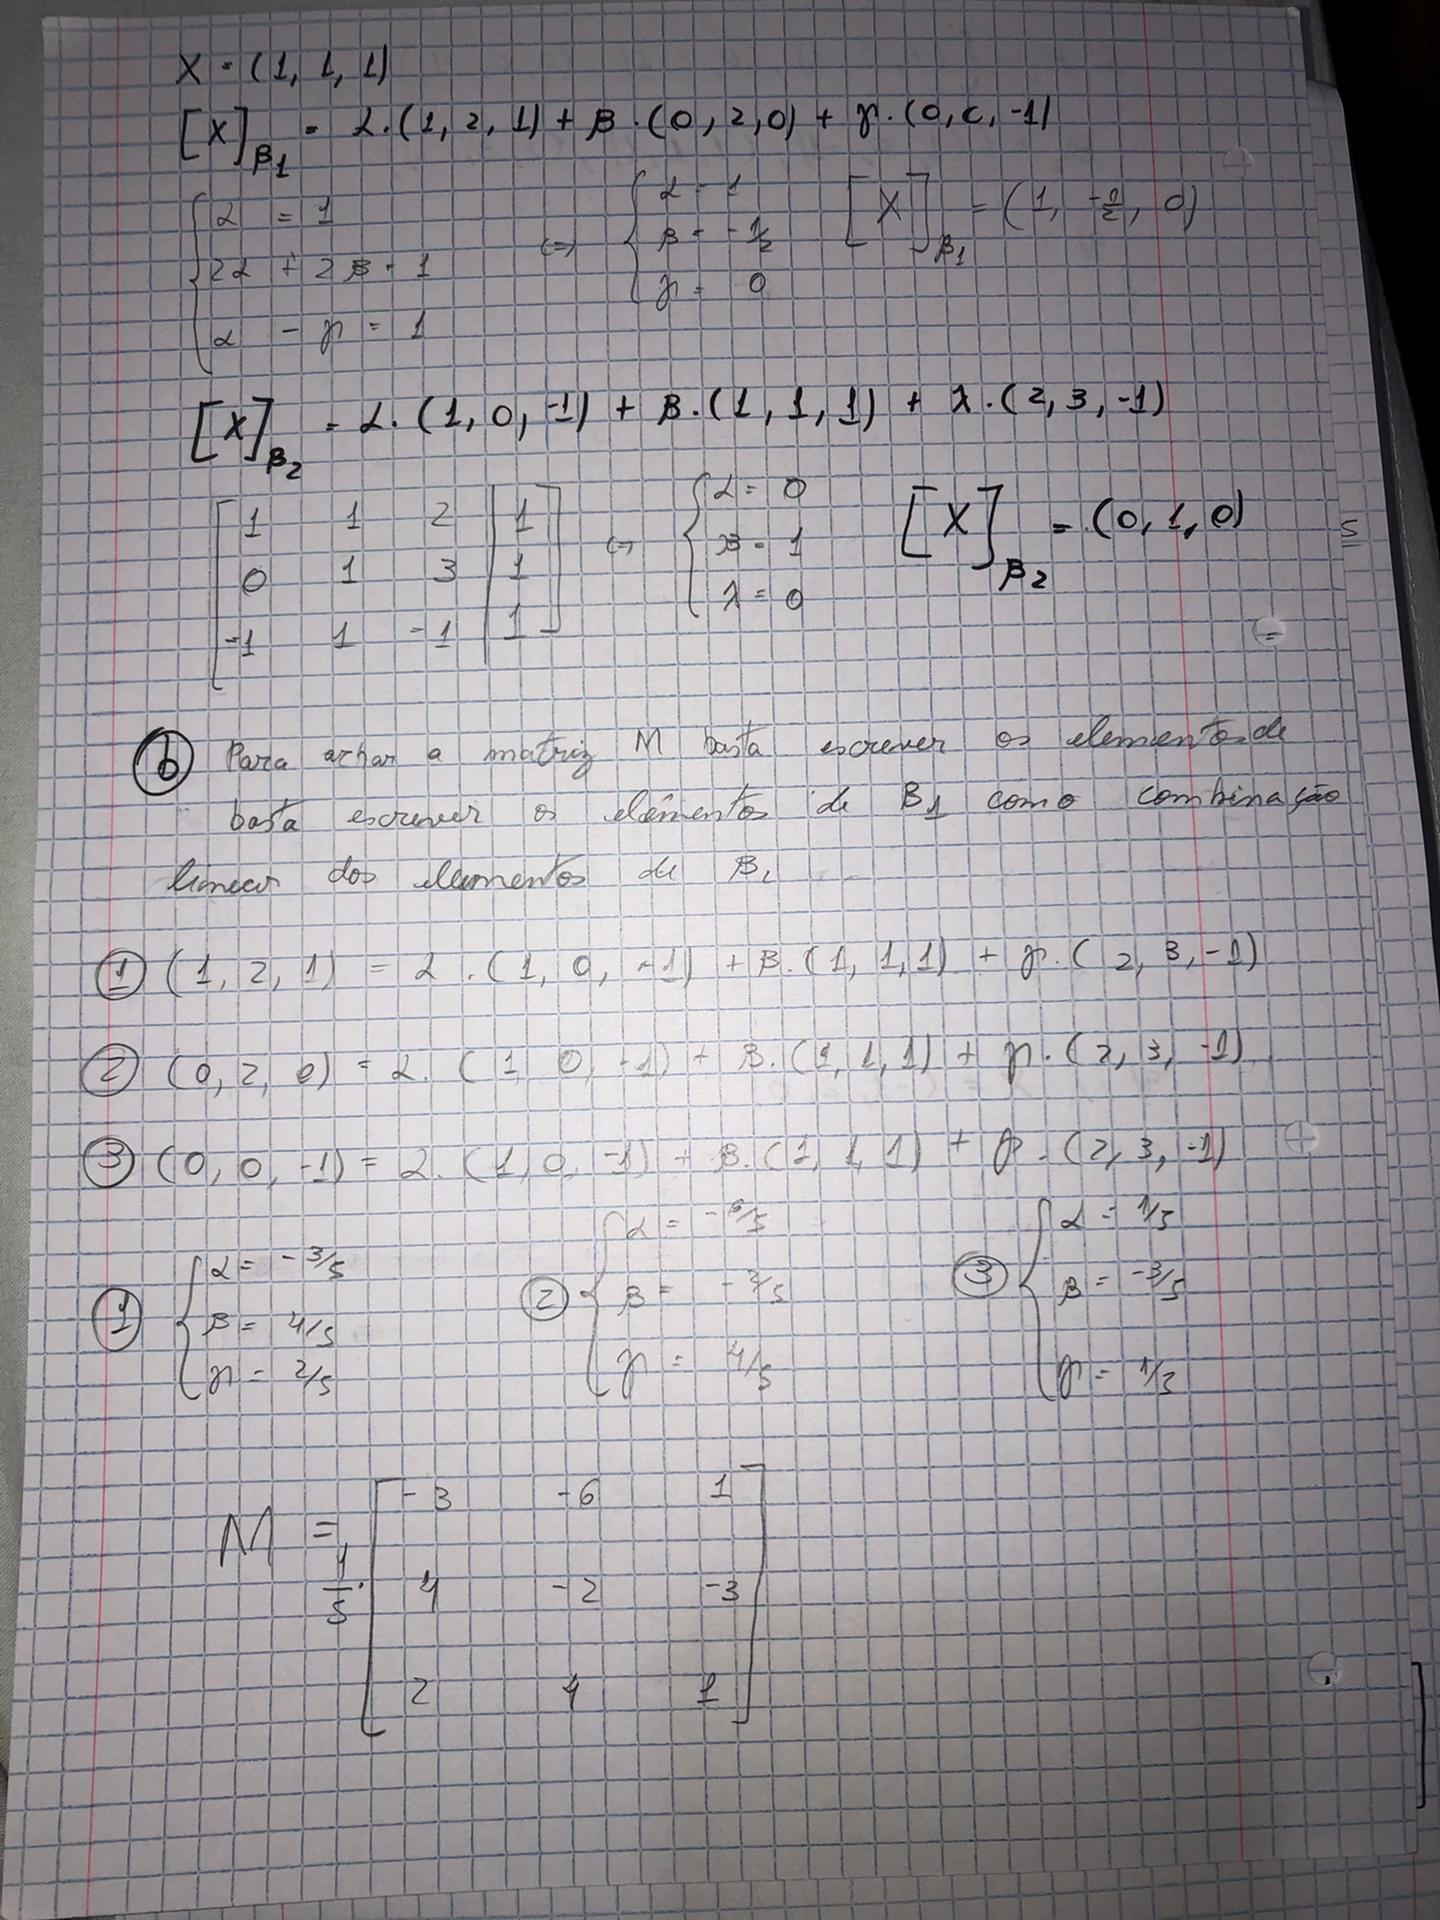 X = (1, 1, 1)
[X]β1 = α.(1, 2, 1) + β.(0, 2, 0) + γ.(0, 0, -1)
{ α = 1
2α + 2β = 1
α - γ = 1
<=> { α = 1
β = -1/2
γ = 0
[X]β1 = (1, -1/2, 0)
[X]β2 = α.(1, 0, -1) + β.(1, 1, 1) + λ.(2, 3, -1)
[ 1 1 2 | 1
0 1 3 | 1
-1 1 -1 | 1 ]
<=> { α = 0
β = 1
λ = 0
[X]β2 = (0, 1, 0)
b Para achar a matriz M basta escrever os elementos de
basta escrever os elementos de B1 como combinação
linear dos elementos de B2
① (1, 2, 1) = α.(1, 0, -1) + β.(1, 1, 1) + γ.(2, 3, -1)
② (0, 2, 0) = α.(1, 0, -1) + β.(1, 1, 1) + γ.(2, 3, -1)
③ (0, 0, -1) = α.(1, 0, -1) + β.(1, 1, 1) + γ.(2, 3, -1)
① { α = -3/5
β = 4/5
γ = 2/5
② { α = -6/5
β = -2/5
γ = 4/5
③ { α = 1/5
β = -3/5
γ = 1/5
M = 1/5 . [ -3 -6 1
4 -2 -3
2 4 1 ]